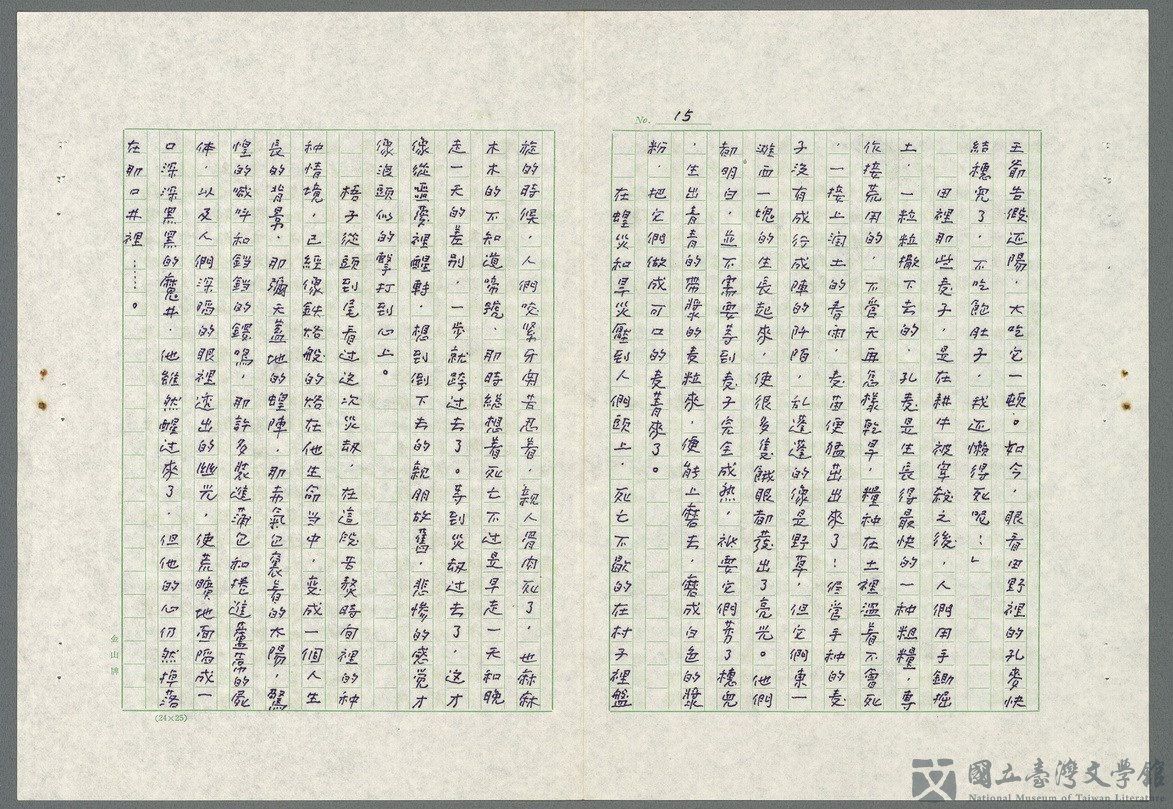 No. 15
王爺告假还陽，大吃它一頓。如今，眼看田野裡的孔麥快
結穗兒了，不吃飽肚子，我还懶得死呢！」
田裡那些麦子，是在耕牛被宰殺之後，人們用手鋤掘
土，一粒粒撒下去的，孔麦是生長得最快的一种粗糧，專
作接荒用的，不管天再怎樣乾旱，糧种在土裡溫着不會死
，一接上潤土的春雨，麦苗便猛茁出來了！侭管手种的麦
子沒有成行成陣的阡陌，乱蓬蓬的像是野草，但它們東一
遍西一塊的生長起來，使很多隻餓眼都發出了亮光。他們
都明白，並不需要等到麦子完全成熟，衹要它們秀了穗兒
，生出青青的帶漿的麦粒來，便能上磨去，磨成白色的漿
粉，把它們做成可口的麦青來了。
在蝗災和旱災壓到人們頭上，死亡不歇的在村子裡盤
旋的時候，人們咬緊牙関苦忍着，親人骨肉死了，也麻麻
木木的不知道啼號，那時総想着死亡不过是早走一天和晚
走一天的差別，一步就跨过去了。等到災劫过去了，这才
像從噩夢裡醒轉，想到倒下去的親朋故舊，悲慘的感觉才
像浪頭似的擊打到心上。
梧子從頭到尾看过这次災劫，在這段苦熬時间裡的种
种情境，已經像鉄烙般的烙在他生命当中，变成一個人生
長的背景，那彌天蓋地的蝗陣，那赤氣包裹着的太陽，驚
惶的喊呼和鐺鐺的鑼鳴，那許多裝進蒲包和捲進蘆蓆的屍
体，以及人們深陷的眼裡透出的幽光，使荒曠地面陷成一
口深深黑黑的魔井，他雖然醒过來了，但他的心仍然掉落
在那口井裡……。
金山牌
(24×25)
國立臺灣文學館
National Museum of Taiwan Literature